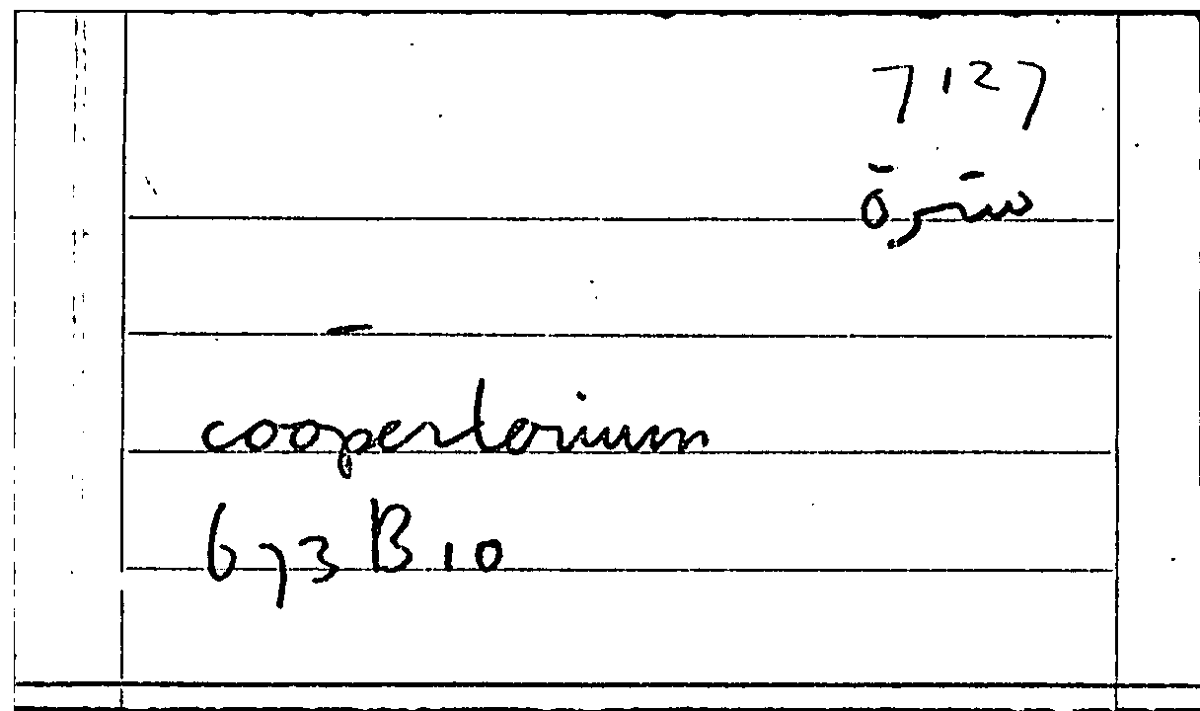 7127
coopertorium
673 B 10